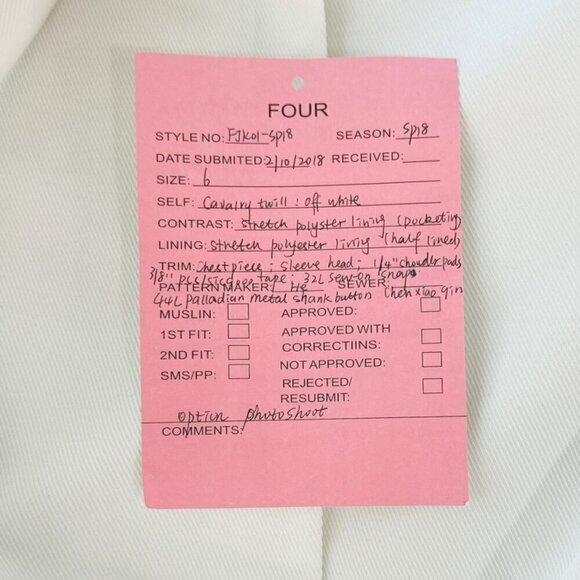 FOUR
STYLE NO: FJK01-SP18 SEASON: SP18
DATE SUBMITED: 2/10/2018 RECEIVED:
SIZE: 6
SELF: Cavalry twill : off white
CONTRAST: stretch polyster lining (pocketing)
LINING: stretch polyester lining (half lined)
TRIM: Chest piece ; sleeve head ; 1/4" shoulder pads
3/8" tape ; 32L sew-on snaps
PATTERN MAKER: He SEWER: Chen Xiao qin
44L palladian metal shank button
MUSLIN: APPROVED:
1ST FIT: APPROVED WITH
CORRECTIINS:
2ND FIT: NOT APPROVED:
SMS/PP: REJECTED/
RESUBMIT:
option photoshoot
COMMENTS: